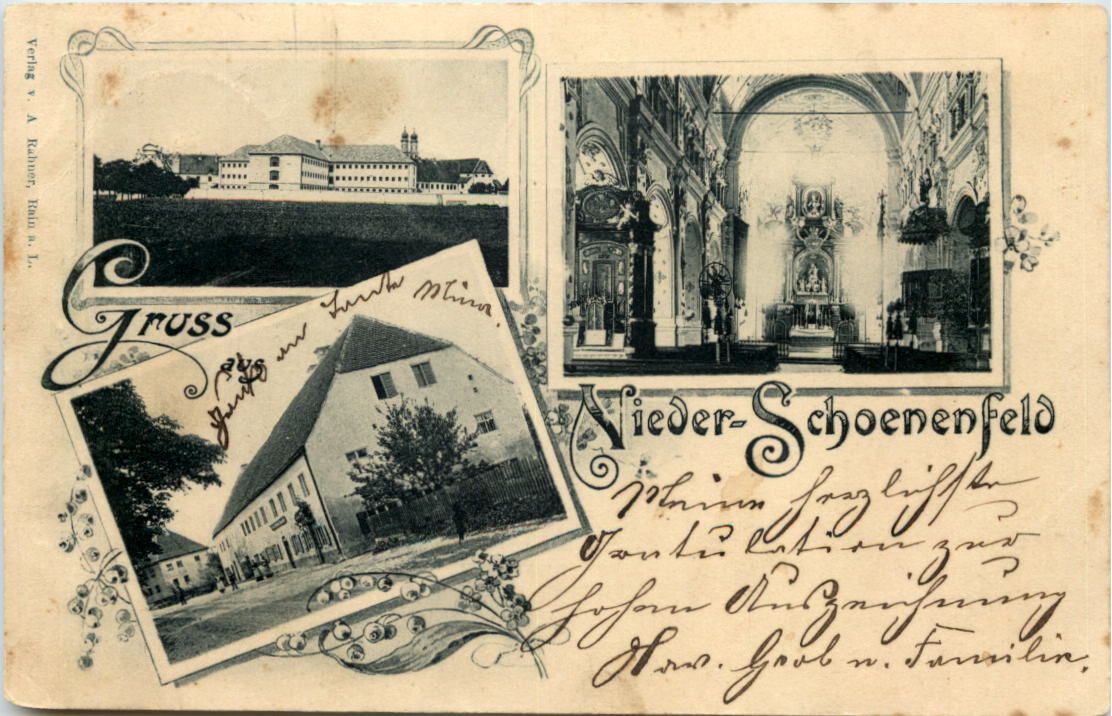 Verlag v. A Rahner, Rain a. L.
Gruss
aus
Nieder-Schoenenfeld
an Tante Mina.
Meine herzlichste
Gratulation zur
hohen Auszeichnung
Xav. Grob u. Familie.